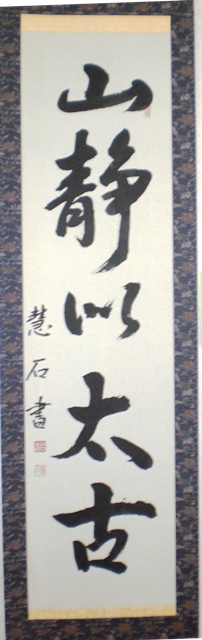 山靜似太古
慧石書